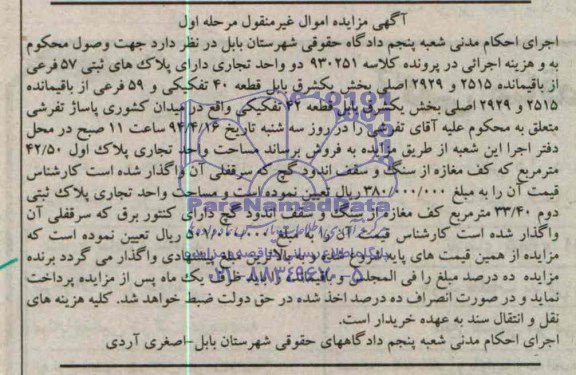 آگهی مزایده اموال غیرمنقول مرحله اول
اجرای احکام مدنی شعبه پنجم دادگاه حقوقی شهرستان بابل در نظر دارد جهت وصول محکوم
به و هزینه اجرائی در پرونده کلاسه ۹۳۰۲۵۱ دو واحد تجاری دارای پلاک های ثبتی ۵۷ فرعی
از باقیمانده ۲۵۱۵ و ۲۹۲۹ اصلی بخش یکشرق بابل قطعه ۴۰ تفکیکی و ۵۹ فرعی از باقیمانده
۲۵۱۵ و ۲۹۲۹ اصلی بخش یکشرق بابل قطعه ۴۲ تفکیکی واقع در میدان کشوری پاساژ تفرشی
متعلق به محکوم علیه آقای تفرشی را در روز سه شنبه تاریخ ۹۴/۴/۱۶ ساعت ۱۱ صبح در محل
دفتر اجرا این شعبه از طریق مزایده به فروش برساند مساحت واحد تجاری پلاک اول ۴۲/۵۰
مترمربع که کف مغازه از سنگ و سقف اندود گچ که سرقفلی آن واگذار شده است کارشناس
قیمت آن را به مبلغ ۳۸۰/۰۰۰/۰۰۰ ریال تعیین نموده است و مساحت واحد تجاری پلاک ثبتی
دوم ۳۳/۴۰ مترمربع کف مغازه از سنگ و سقف اندود گچ دارای کنتور برق که سرقفلی آن
واگذار شده است کارشناس قیمت آن را به مبلغ ریال تعیین نموده است که
مزایده از همین قیمت های پایه شروع و به بالاترین مبلغ پیشنهادی واگذار می گردد برنده
مزایده ده درصد مبلغ را فی المجلس و مابقی را باید ظرف یک ماه پس از مزایده پرداخت
نماید و در صورت انصراف ده درصد اخذ شده در حق دولت ضبط خواهد شد. کلیه هزینه های
نقل و انتقال سند به عهده خریدار است.
اجرای احکام مدنی شعبه پنجم دادگاههای حقوقی شهرستان بابل-اصغری آردی
ParsNamadData
۰۲۱-۸۸۳۴۹۶۷۰-۵